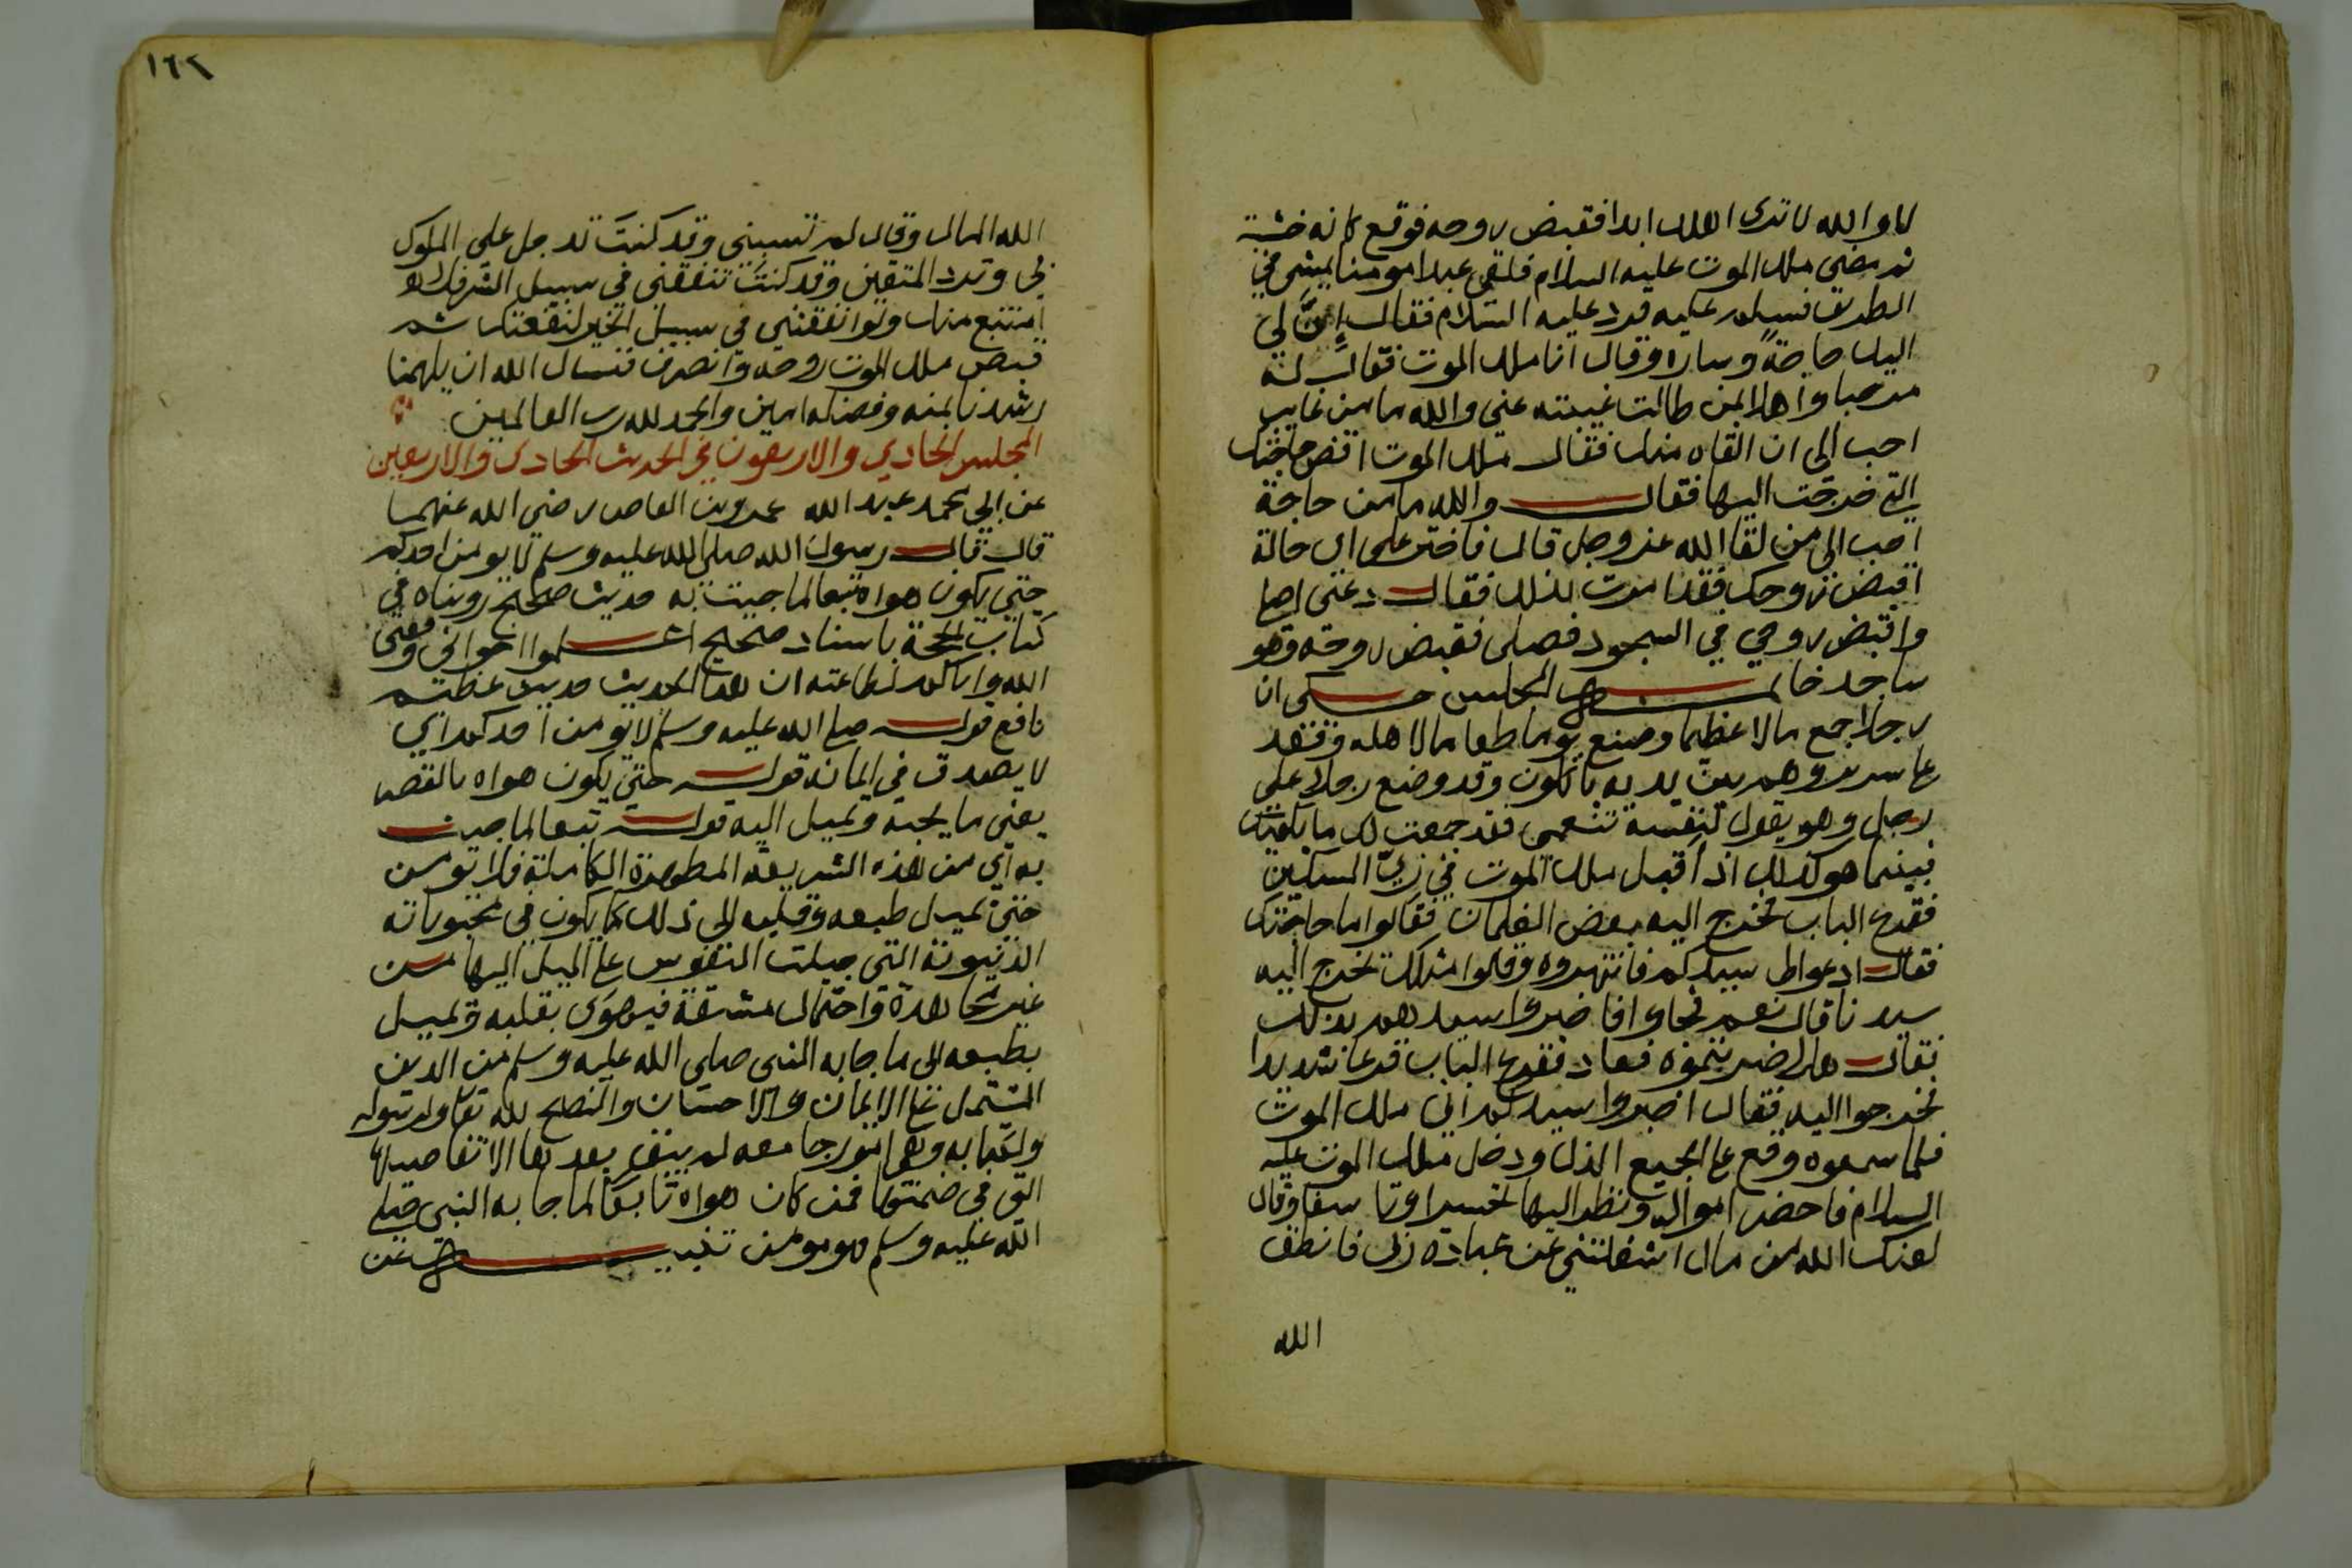 لا والله لا ترى اهلك ابدا فقبض روحه فوقع كانه خشبة
ثم مضى ملك الموت عليه السلام فلقي عبدا مومنا يمشي في
الطريق فسلم عليه فرد عليه السلام فقال إنَّ لي
اليك حاجةً وساره وقال انا ملك الموت فقال له
مرحبا واهلا بمن طالت غيبته عني والله ما من غايب
احب الي ان القاه منك فقال ملك الموت اقض حاجتك
التي خرجت اليها فقال والله ما من حاجة
احب الي من لقا الله عز وجل قال فاختر على اي حالة
اقبض روحك فقد امرت بذلك فقال دعني اصلي
واقبض روحي في السجود فصلى فقبض روحه وهو
ساجد خاتمة المجلس حكى ان
رجلا جمع مالا عظيما وصنع يوما طعاما لاهله وقعد
على سرير وهم بين يديه ياكلون وقد وضع رجلا على
رجل وهو يقول لنفسه تنعمي فقد جمعت لك ما يكفيك
فبينما هو كذلك اذ أقبل ملك الموت في زيّ المسكين
فقرع الباب فخرج اليه بعض الغلمان فقالوا ما حاجتك
فقال ادعوا لي سيدكم فانتهروه وقالوا مثلك يخرج اليه
سيدنا قال نعم فجاوا فاخبروا سيدهم بذلك
فقال هلا ضربتموه فعاد فقرع الباب قرعا شديدا
فخرجوا اليه فقال اخبروا سيدكم اني ملك الموت
فلما سمعوه وقع على الجميع الذل ودخل ملك الموت عليه
السلام فاحضر امواله ونظر اليها تحسرا وتاسفا وقال
لعنك الله من مال اشغلتني عن عبادة ربي فانطق
الله
١٦٢
الله المال وقال لم تسبني وقد كنتَ تدخل على الملوك
بي وترد المتقين وقد كنتَ تنفقني في سبيل الشر فلا
امتنع منك ولو انفقتني في سبيل الخير لنفعتك ثم
قبض ملك الموت روحه وانصرف فنسال الله ان يلهمنا
رشدنا بمنه وفضله امين والحمد لله رب العالمين
المجلس الحادي والاربعون في الحديث الحادي والاربعين
عن ابي محمد عبد الله عمرو بن العاص رضي الله عنهما
قال قال رسول الله صلى الله عليه وسلم لا يومن احدكم
حتى يكون هواه تبعا لما جيت به حديث صحيح رويناه في
كتاب الحجة باسناد صحيح اعلموا اخواني وفقني
الله واياكم لطاعته ان هذا الحديث حديث عظيم
نافع قوله صلى الله عليه وسلم لا يومن احدكم اي
لا يصدق في ايمانه قوله حتى يكون هواه بالقصر
يعني ما يحبه ويميل اليه قوله تبعا لما جيت
به اي من هذه الشريعة المطهرة الكاملة فلا يومن
حتى يميل طبعه وقلبه الى ذلك كما يكون في محبوباته
الدنيوية التي جبلت النفوس على الميل اليها من
غير مجاهدة واحتمال مشقة فيهوى بقلبه ويميل
بطبعه الى ما جا به النبي صلى الله عليه وسلم من الدين
المشتمل على الايمان والاحسان والنصح لله تعالى ولرسوله
ولكتابه وهي امور جامعه لم يبق بعدها الا تفاصيلها
التي في ضمنها فمن كان هواه تابعا لما جا به النبي صلى
الله عليه وسلم فهو مومن تنبيه عن